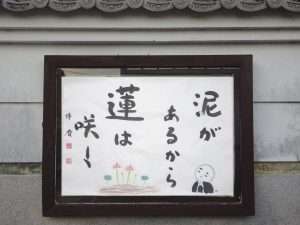 泥が
あるから
蓮は
咲く